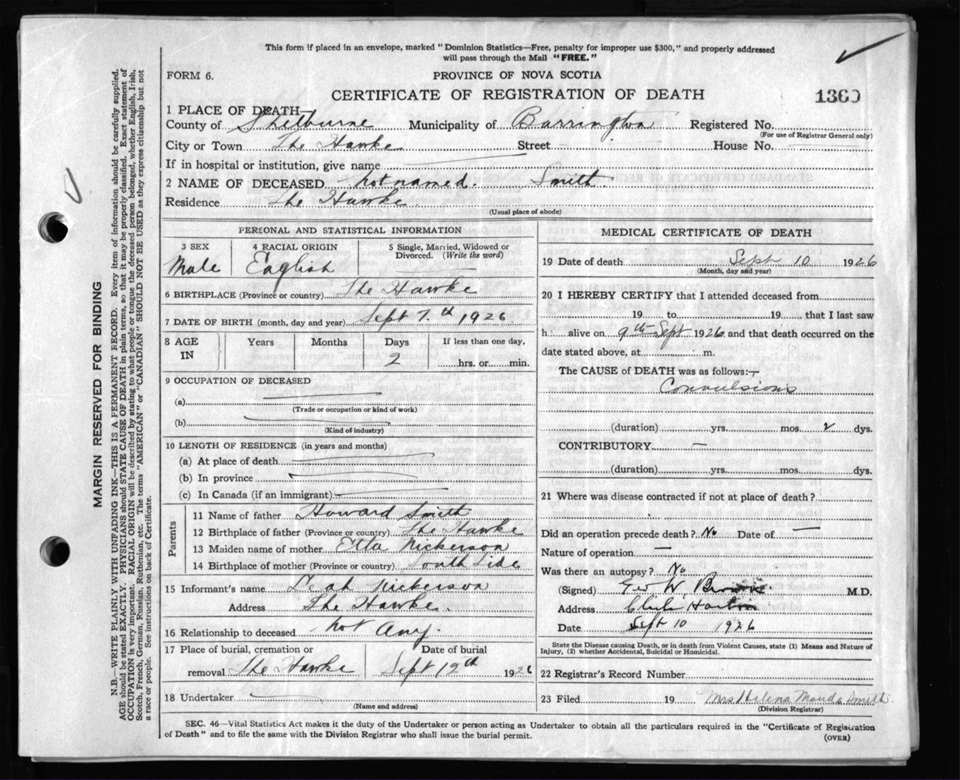 This form if placed in an envelope, marked "Dominion Statistics—Free, penalty for improper use $300," and properly addressed
will pass through the Mail "FREE."
FORM 6.
PROVINCE OF NOVA SCOTIA
CERTIFICATE OF REGISTRATION OF DEATH
1360
1 PLACE OF DEATH
County of Shelburne Municipality of Barrington Registered No.
(For use of Registrar General only)
City or Town The Hawke Street House No.
If in hospital or institution, give name
2 NAME OF DECEASED not named. Smith
Residence The Hawke
(Usual place of abode)
PERSONAL AND STATISTICAL INFORMATION
3 SEX 4 RACIAL ORIGIN 5 Single, Married, Widowed or
Divorced. (Write the word)
Male English
6 BIRTHPLACE (Province or country) The Hawke
7 DATE OF BIRTH (month, day and year) Sept 7th 1926
8 AGE IN Years Months Days If less than one day,
2 hrs. or min.
9 OCCUPATION OF DECEASED
(a)
(Trade or occupation or kind of work)
(b)
(Kind of industry)
10 LENGTH OF RESIDENCE (in years and months)
(a) At place of death
(b) In province
(c) In Canada (if an immigrant)
Parents
11 Name of father Howard Smith
12 Birthplace of father (Province or country) The Hawke
13 Maiden name of mother Etta Nickerson
14 Birthplace of mother (Province or country) South Side
15 Informant's name Leah Nickerson
Address The Hawke.
16 Relationship to deceased not Any.
17 Place of burial, cremation or Date of burial
removal The Hawke Sept 12th 1926
18 Undertaker
(Name and address)
MEDICAL CERTIFICATE OF DEATH
19 Date of death Sept 10 1926
(Month, day and year)
20 I HEREBY CERTIFY that I attended deceased from
19 to 19 that I last saw
h alive on 9th Sept 1926 and that death occurred on the
date stated above, at m.
The CAUSE of DEATH was as follows:—
Convulsions
(duration) yrs. mos. 2 dys.
CONTRIBUTORY —
(duration) yrs. mos. dys.
21 Where was disease contracted if not at place of death?
Did an operation precede death? No Date of —
Nature of operation —
Was there an autopsy? No
(Signed) W M.D.
Address
Date Sept 10 1926
State the Disease causing Death, or in death from Violent Causes, state (1) Means and Nature of
Injury, (2) whether Accidental, Suicidal or Homicidal.
22 Registrar's Record Number
23 Filed 19 Mrs Helena Maude Smith
(Division Registrar)
SEC. 46—Vital Statistics Act makes it the duty of the Undertaker or person acting as Undertaker to obtain all the particulars required in the "Certificate of Registration
of Death" and to file the same with the Division Registrar who shall issue the burial permit.
(OVER)
MARGIN RESERVED FOR BINDING
N.B.—WRITE PLAINLY WITH UNFADING INK—THIS IS A PERMANENT RECORD. Every item of information should be carefully supplied.
AGE should be stated EXACTLY. PHYSICIANS should STATE CAUSE OF DEATH in plain terms, so that it may be properly classified. Exact statement of
OCCUPATION is very important. RACIAL ORIGIN will be described by stating to what people or tongue the deceased person belonged, whether English, Irish,
Scotch, French, German, Russian, Ruthenian, etc. The terms "AMERICAN" or "CANADIAN" SHOULD NOT BE USED as they express citizenship but not
a race or people. See instructions on back of Certificate.